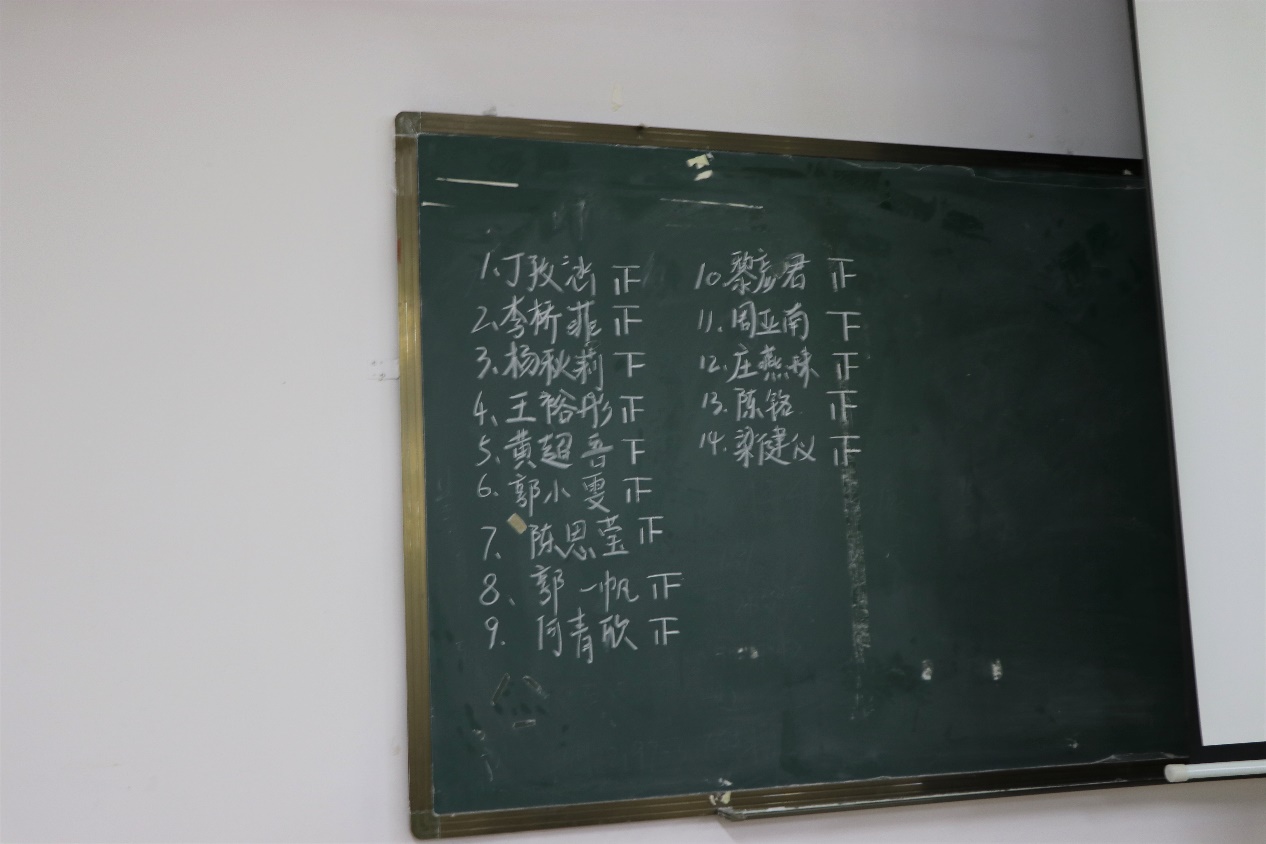 1.丁孜涵 正
2.李桥菲 正
3.杨秋莉 下
4、王裕彤 正
5、黄超吾 下
6.郭小雯 正
7.陈思莹 正
8、郭一帆 正
9.何青欣 正
10黎彦君 正
11.周亚南 下
12.庄燕珠 正
13.陈铭 正
14.梁健仪 正